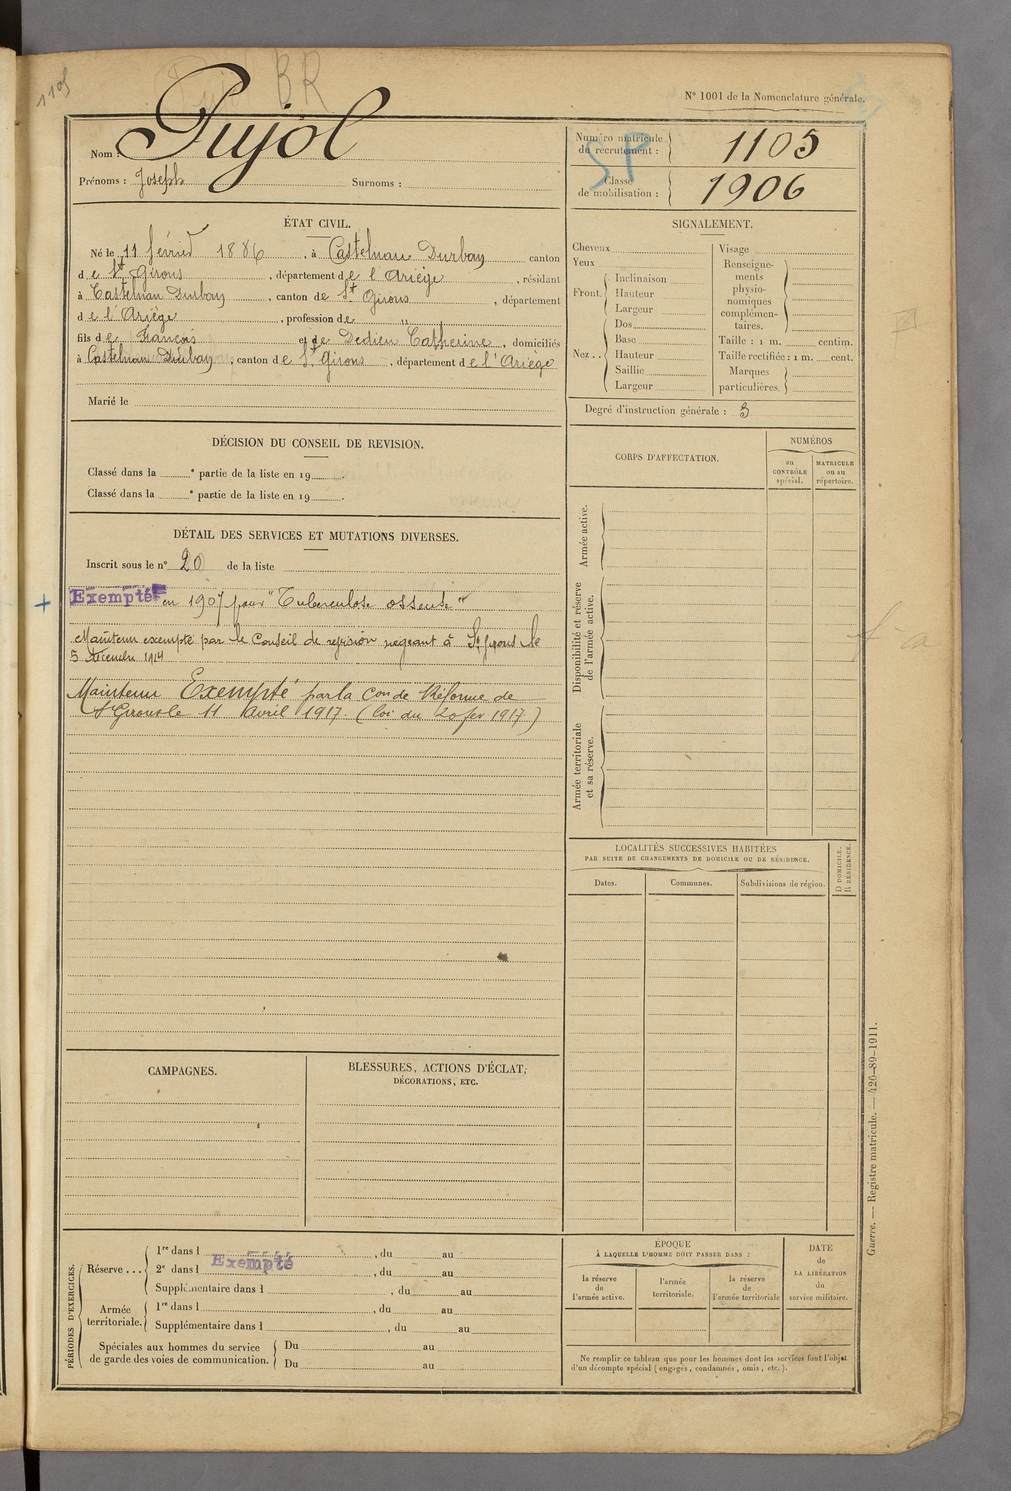 1105
BR
N° 1001 de la Nomenclature générale.
Nom : Pujol
Prénoms : Joseph Surnoms :
Numéro matricule du recrutement : 1105
Classe de mobilisation : 1906
SP
ÉTAT CIVIL.
Né le 11 février 1886, à Castelnau Durban canton
de St Girons, département de l'Ariège, résidant
à Castelnau Durban, canton de St Girons, département
de l'Ariège, profession de "
fils de François et de Dedieu Catherine, domiciliés
à Castelnau Durban, canton de St Girons, département de l'Ariège
Marié le
SIGNALEMENT.
Cheveux
Yeux
Front.
Inclinaison
Hauteur
Largeur
Nez..
Dos
Base
Hauteur
Saillie
Largeur
Visage
Renseigne-
ments
physio-
nomiques
complémen-
taires.
Taille : 1 m. centim.
Taille rectifiée : 1 m. cent.
Marques
particulières.
Degré d'instruction générale : 3
DÉCISION DU CONSEIL DE REVISION.
Classé dans la e partie de la liste en 19 .
Classé dans la e partie de la liste en 19 .
DÉTAIL DES SERVICES ET MUTATIONS DIVERSES.
Inscrit sous le n° 20 de la liste
Exempté en 1907 pour "Tuberculose osseuse"
Maintenu exempté par le Conseil de revision siégeant à St Girons le
5 décembre 1914
Maintenu Exempté par la Con de Réforme de
St Girons le 11 Avril 1917. (loi du 20 fev 1917)
CORPS D'AFFECTATION.
NUMÉROS
au CONTRÔLE spécial.
MATRICULE ou au répertoire.
Armée active.
Disponibilité et réserve de l'armée active.
Armée territoriale et sa réserve.
LOCALITÉS SUCCESSIVES HABITÉES
PAR SUITE DE CHANGEMENTS DE DOMICILE OU DE RÉSIDENCE.
Dates.
Communes.
Subdivisions de région.
D DOMICILE.
R RÉSIDENCE.
CAMPAGNES.
BLESSURES, ACTIONS D'ÉCLAT,
DÉCORATIONS, ETC.
PÉRIODES D'EXERCICES.
Réserve ...
1re dans l , du au
Exempté
2e dans l , du au
Supplémentaire dans l , du au
Armée territoriale.
1re dans l , du au
Supplémentaire dans l , du au
Spéciales aux hommes du service
de garde des voies de communication.
Du au
Du au
ÉPOQUE
À LAQUELLE L'HOMME DOIT PASSER DANS :
la réserve de l'armée active.
l'armée territoriale.
la réserve de l'armée territoriale
DATE
de
LA LIBÉRATION
du
service militaire.
Ne remplir ce tableau que pour les hommes dont les services font l'objet
d'un décompte spécial (engagés, condamnés, omis, etc.).
Guerre. — Registre matricule. — 426-89-1911.